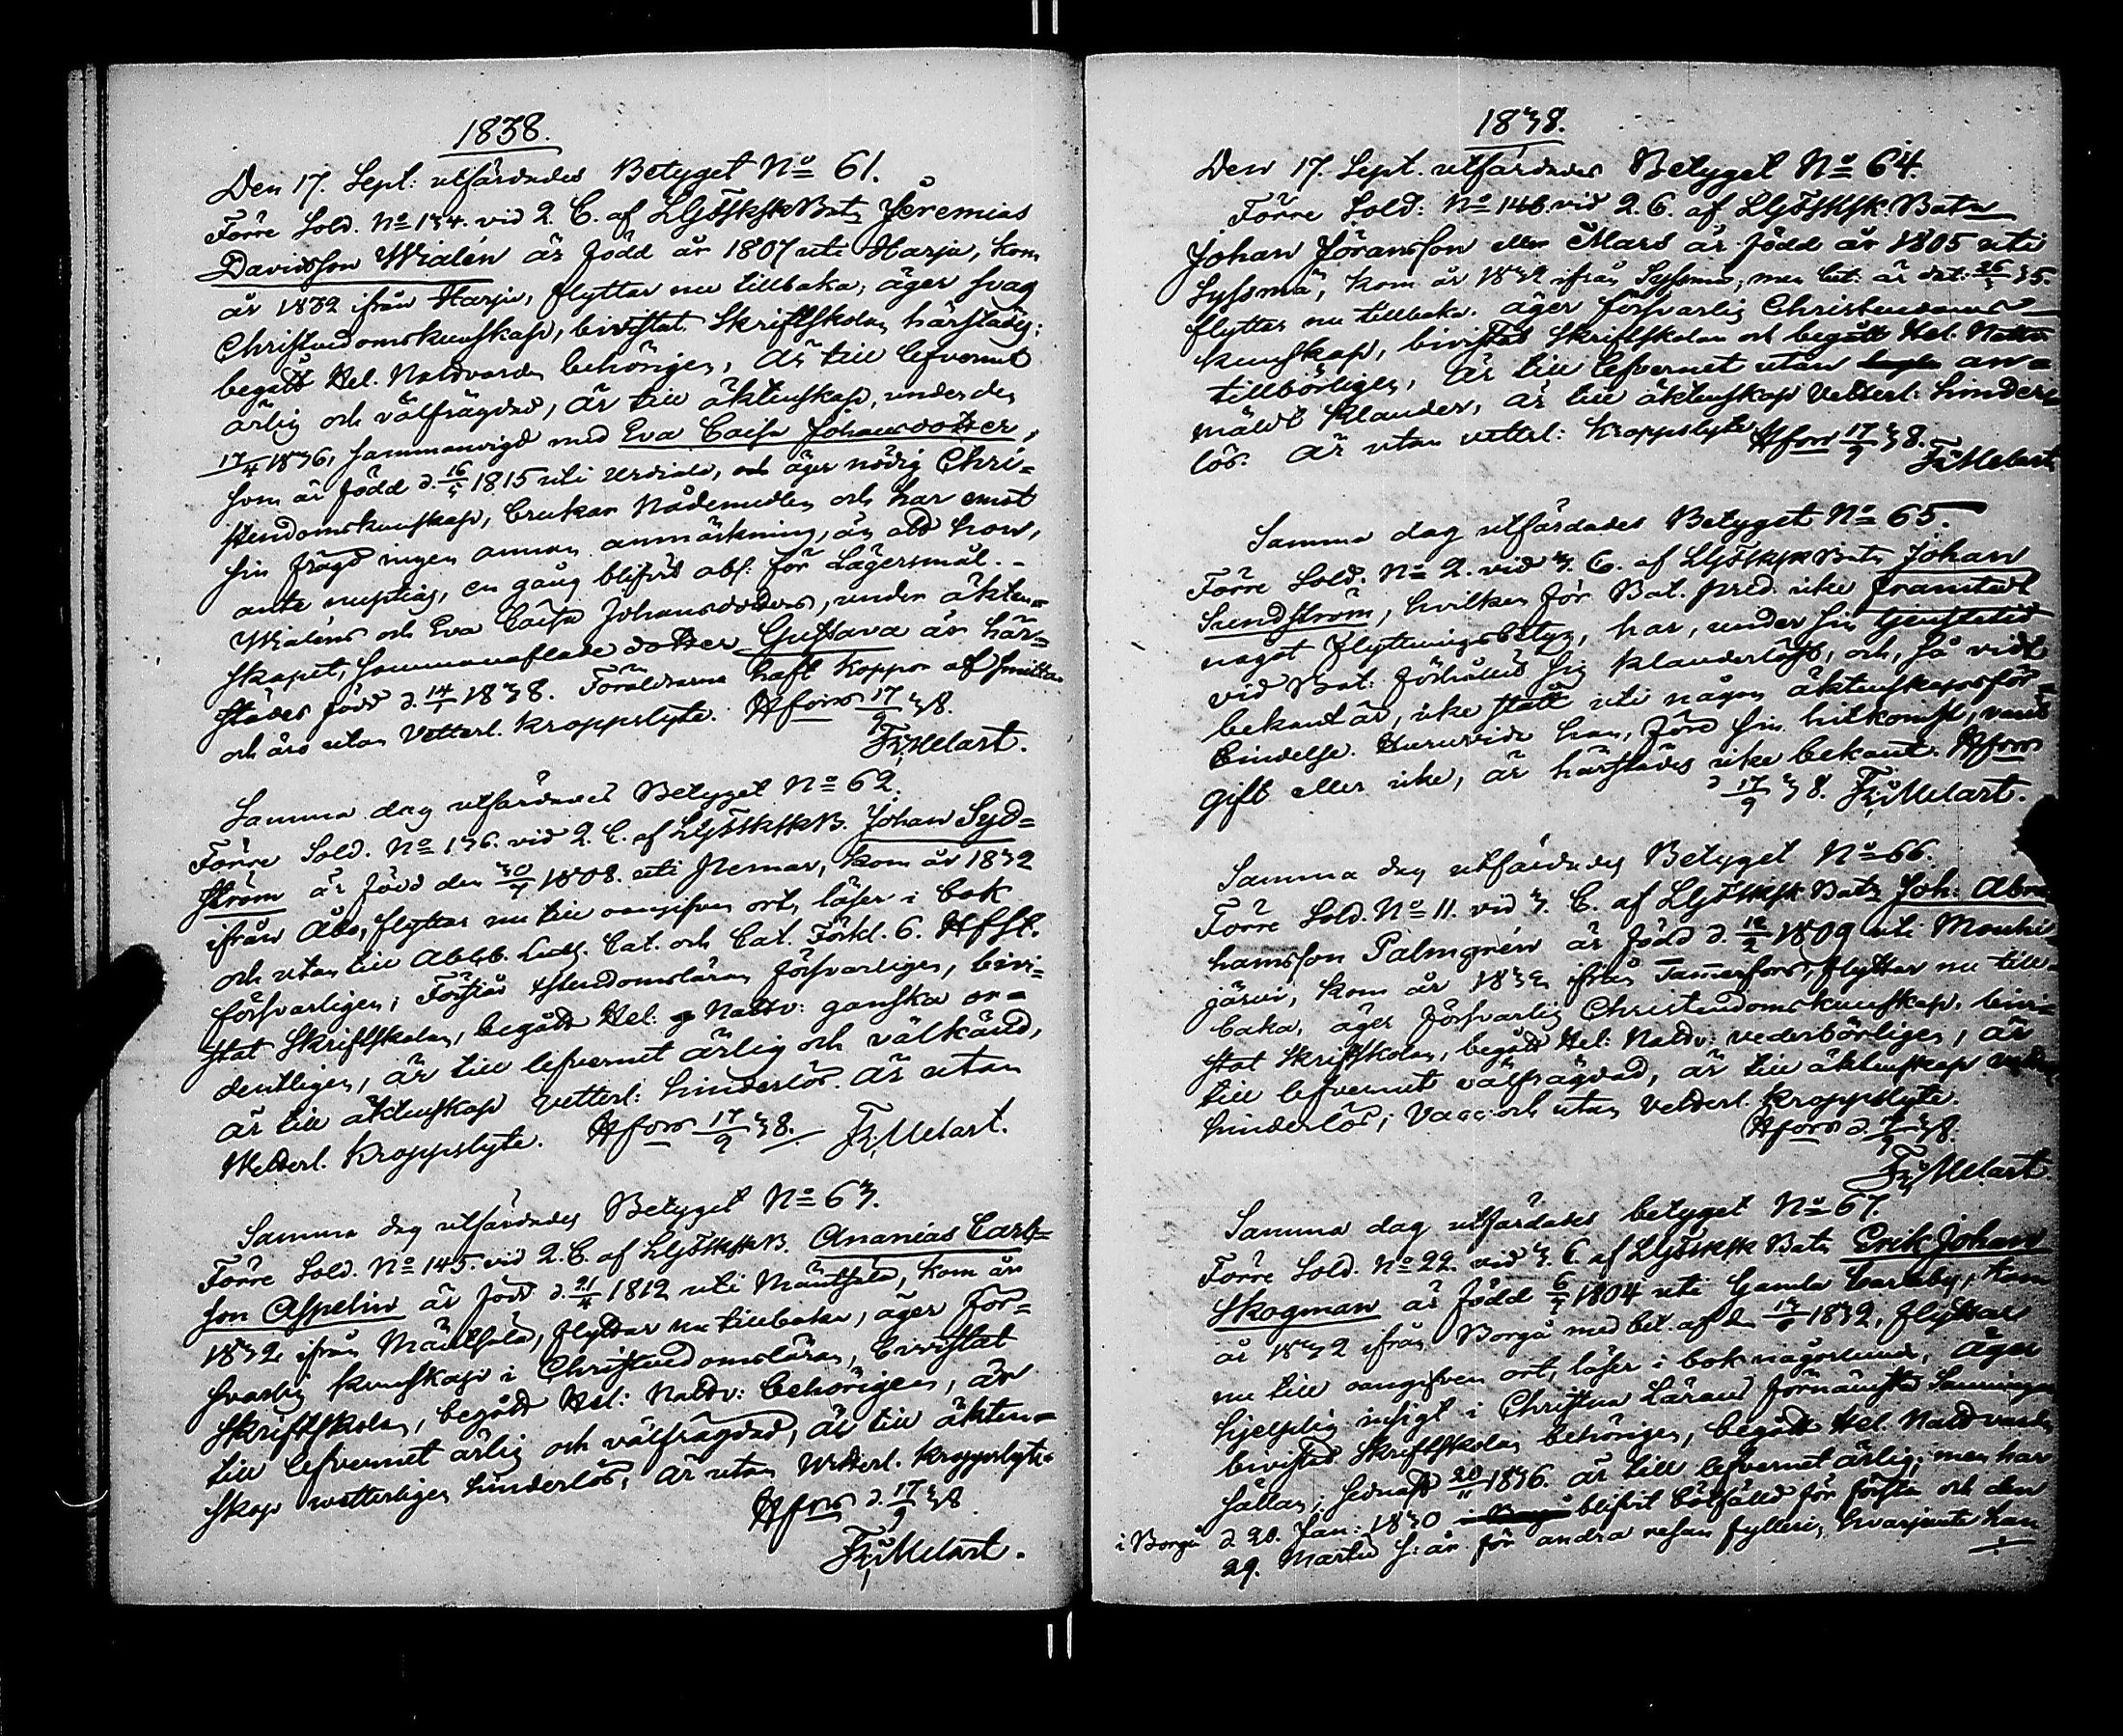 1838.
Den 17. Sept: utfärdades Betyget No 61.
Förre Sold. No 134. vid 2. C. af LGSkSk Batn Jeremias
Davidsson Widlén är född år 1807 uti Harju, kom
år 1832 ifrån Harju, flyttar nu tillbaka, äger svag
Christendomskunskap, bivistat Skriftskolan härstädes,
begått Hel. Nattvarden behörigen, är till lefvernet
ärlig och välfrägdad, är till äktenskap, under den
17/4 1836, sammanvigd med Eva Caisa Johansdotter,
som är född d. 16/5 1815 uti Urdiala, och äger nödig Chri-
stendomskunskap, brukar Nådemedlen och har emot
sin frägd ingen annan anmärkning, än att hon,
ante nuptias, en gång blifvit abs: för Lägersmål. -
Widléns och Eva Caisa Johansdotters, under äkten-
skapet, sammanaflade dotter Gustava är här-
städes född d. 14/1 1838. Föräldrarna haft koppor af smitta
och äro utan Vetterl. kroppslyte. Hfors 17/9 38.
Fr; Melart.
Samma dag utfärdades Betyget No 62.
Förre Sold. No 136. vid 2. C. af LGSkSk B. Johan Syd-
ström är född den 30/7 1808. uti Nemar, kom år 1832
ifrån Åbo, flyttar nu till oangifven ort, läser i bok
och utan till Abcb. Luth. Cat. och Cat. Förkl. 6. Hfst.
försvarligen, Förstår Xstendomsläran försvarligen, bivi-
stat Skriftskolan, begått Hel: Nattv: ganska or-
dentligen, är till lefvernet ärlig och välkänd,
är till äktenskap Vetterl: hinderlös. Är utan
Vetterl. kroppslyte. Hfors 17/9 38. Fr; Melart.
Samma dag utfärdades Betyget No 63.
Förre Sold. No 145. vid 2. C. af LGSkSk B. Ananias Carls-
son Aspelin är född d. 21/4 1812 uti Mäntsälä, kom år
1832 ifrån Mäntsälä, flyttar nu tillbaka, äger för-
svarlig kunskap i Christendomsläran, bivistat
Skriftskolan, begått Hel: Nattv: behörigen, är
till lefvernet ärlig och välfrägdad, är till äkten-
skap wetterligen hinderlös, är utan Vetterl. kroppslyte.
Hfors d. 17/9 38
Fr; Melart.
1838.
Den 17. Sept. utfärdades Betyget No 64.
Förre Sold: No 146. vid 2. C. af LGSkSk. Batn
Johan Jöransson eller Mars är född år 1805 uti
Syssmä, kom år 1832 ifrån Syssmä, men bet: är dat: 26/3 35.
flyttar nu tillbaka. äger försvarlig Christendoms-
kunskap, bivistat Skriftskolan och begått Hel. Nattv
tillbörligen, är till lefvernet utan an-
mäldt klander, är till äktenskap Vetterl: hinder-
lös. Är utan vetterl: kroppslyte. Hfors 17/9 38.
Fr; Melart
Samma dag utfärdades Betyget No 65.
Förre Sold. No 2. vid 3. C. af LGSkSk Batn Johan
Sundström, hvilken för Bat. pred. icke framtedt
något flyttningsbetyg, har, under sin tjenstetid
vid Bat: förhållit sig klanderlöst, och, så vidt
bekant är, icke stått uti någon äktenskapsför-
bindelse. Huruvida han, före sin hitkomst, varit
gift eller icke, är härstädes icke bekant. Hfors
d 17/9 38. Fr; Melart.
Samma dag utfärdades Betyget No 66.
Förre Sold. No 11. vid 3. C. af LGSkSk Batn Joh: Abra
hamsson Palmgrén är född d. 12/2 1809 uti Mouhi-
järvi, kom år 1832 ifrån Tammerfors, flyttar nu till-
baka, äger försvarlig Christendomskunskap, bivi-
stat Skriftskolan, begått Hel: Nattv: vederbörligen, är
till lefvernet välfrägdad, är till äktenskap
hinderlös, Vacc: och utan Vetterl. kroppslyte.
Hfors d. 17/9 38.
Fr; Melart.
Samma dag utfärdades betyget No 67.
Förre Sold. No 22. vid 3. C. af LGSkSk Batn Erik Johan
Skogman är född 6/5 1804 uti Gamla Carleby, kom
år 1832 ifrån Borgå med bet. af d. 1832, flyttar
nu till oangifven ort, läser i bok någorlunda, äger
hjelplig insigt i Christna Lärans förnämsta Sanningar
bivistat Skriftskolan behörigen, begått Hel. Nattvarden
sällan, sednast 20/11 1836. är till lefvernet ärlig, men har
i Borgå d 20. Jan: 1830 blifvit bötfälld för första och den
29. Martii s: år för andra resan fylleri, hvarjemte han